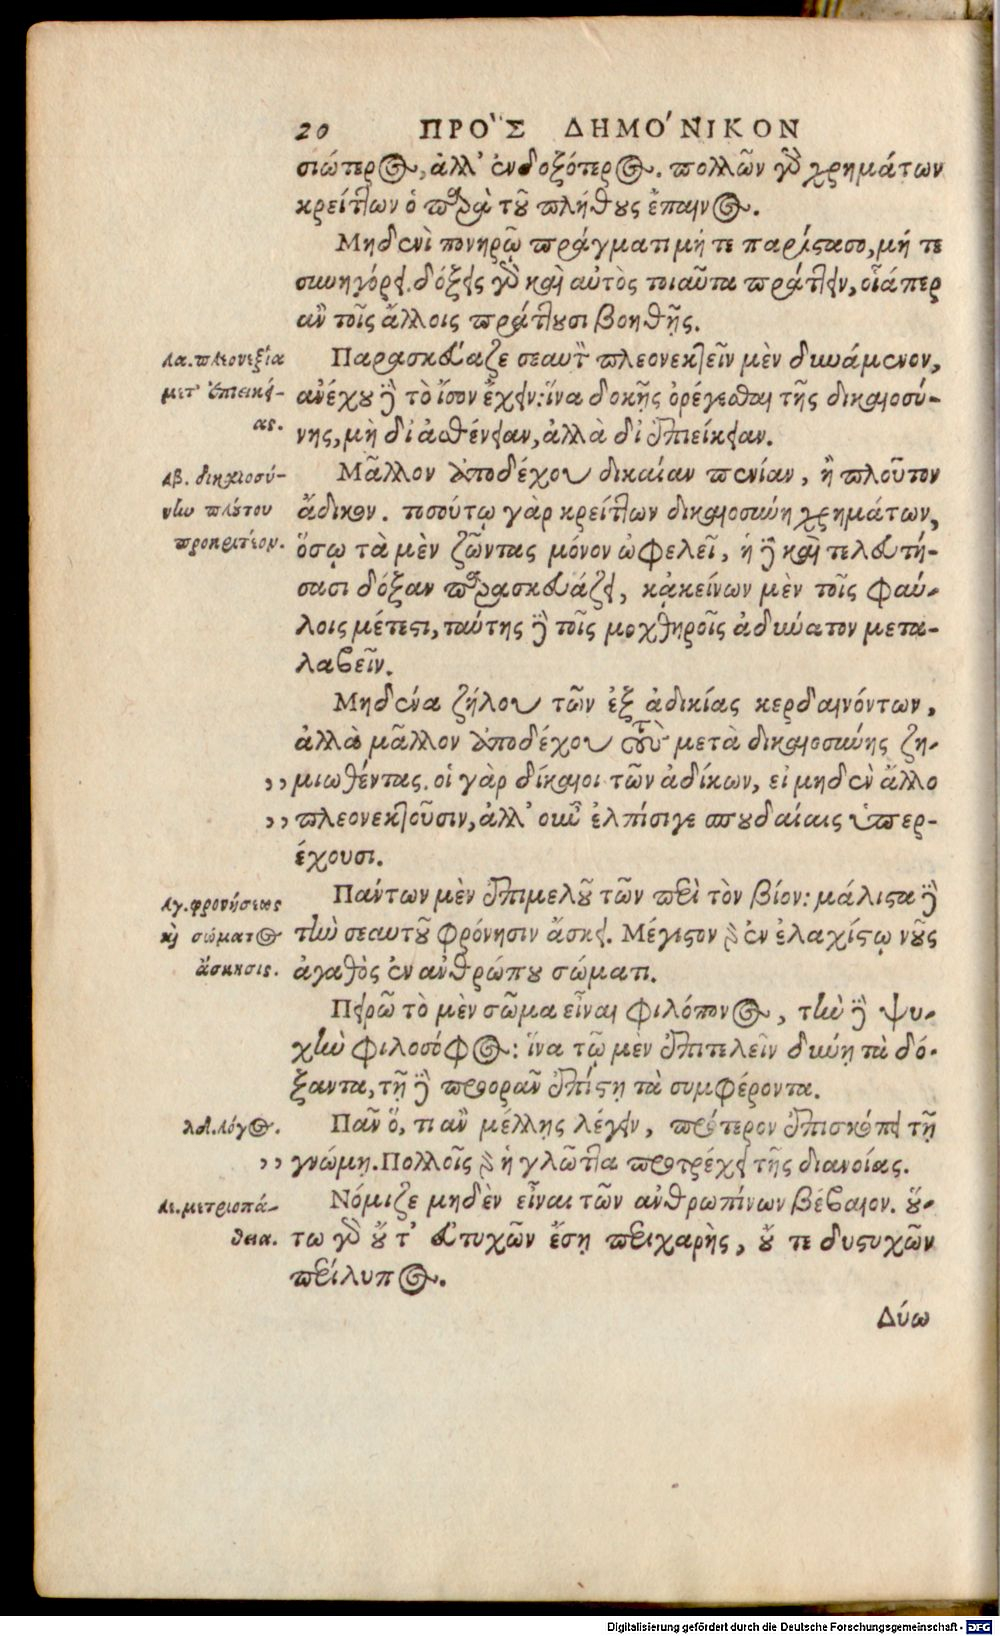 20 ΠΡΟ῍Σ ΔΗΜΟ΄ΝΙΚΟΝ
σιώτερος, ἀλλ’ ἐνδοξότερος. πολλῶν γὸ χρημάτων
κρείτ7ων ὁ παρὰ τοῦ πλήθους ἔπαινος.
Μηδενὶ πονηρῷ πράγματι μή τε παρίστασο, μή τε
συνηγόρει. δόξεις γὸ καὶ αὐτὸς τοιαῦτα πράττειν, οἷάπερ
ἂν τοῖς ἄλλοις πράττουσι βοηθῇς.
λα. πλεονεξία
μετ’ ἐπιεικεί-
ας.
Παρασκεύαζε σεαυτὸν πλεονεκτεῖν μὲν δυνάμενον,
ἀνέχου δὲ τὸ ἴσον ἔχειν: ἵνα δοκῇς ὀρέγεσθαι τῆς δικαιοσύ-
νης, μὴ δι’ ἀσθένειαν, ἀλλὰ δι’ ἐπιείκειαν.
λβ. δικαιοσύ-
νην πλούτου
προκριτέον.
Μᾶλλον ἀποδέχου δικαίαν πενίαν, ἢ πλοῦτον
ἄδικον. τοσούτῳ γὰρ κρείττων δικαιοσύνη χρημάτων,
ὅσῳ τὰ μὲν ζῶντας μόνον ὠφελεῖ, ἡ δὲ καὶ τελευτή-
σασι δόξαν παρασκευάζει, κᾀκείνων μὲν τοῖς φαύ-
λοις μέτεστι, ταύτης δὲ τοῖς μοχθηροῖς ἀδύνατον μετα-
λαβεῖν.
Μηδένα ζήλου τῶν ἐξ ἀδικίας κερδαινόντων,
ἀλλὰ μᾶλλον ἀποδέχου τοὺς μετὰ δικαιοσύνης ζη-
,, μιωθέντας. οἱ γὰρ δίκαιοι τῶν ἀδίκων, εἰ μηδὲν ἄλλο
,, πλεονεκτοῦσιν, ἀλλ’ οὖν ἐλπίσιγε σπουδαίαις ὑπερ-
έχουσι.
λγ. φρονήσεως
καὶ σώματος
ἄσκησις.
Πάντων μὲν ἐπιμελοῦ τῶν περὶ τὸν βίον: μάλιστα δὲ
τὴν σεαυτοῦ φρόνησιν ἄσκει. Μέγιστον γὰρ ἐν ἐλαχίστῳ νοῦς
ἀγαθὸς ἐν ἀνθρώπου σώματι.
Πειρῶ τὸ μὲν σῶμα εἶναι φιλόπονος, τὴν δὲ ψυ-
χὴν φιλοσόφος: ἵνα τῷ μὲν ἐπιτελεῖν δύνῃ τὰ δό-
ξαντα, τῇ δὲ προορᾶν ἐπίστῃ τὰ συμφέροντα.
λδ. λόγος.
Πᾶν ὅ, τι ἂν μέλλῃς λέγειν, πρότερον ἐπισκόπει τῇ
,, γνώμῃ. Πολλοῖς γὰρ ἡ γλῶττα προτρέχει τῆς διανοίας.
λε. μετριοπά-
θεια.
Νόμιζε μηδὲν εἶναι τῶν ἀνθρωπίνων βέβαιον. οὕ-
τω γὸ οὔτ’ εὐτυχῶν ἔσῃ περιχαρὴς, οὔ τε δυστυχῶν
περίλυπος.
Δύω
Digitalisierung gefördert durch die Deutsche Forschungsgemeinschaft - DFG